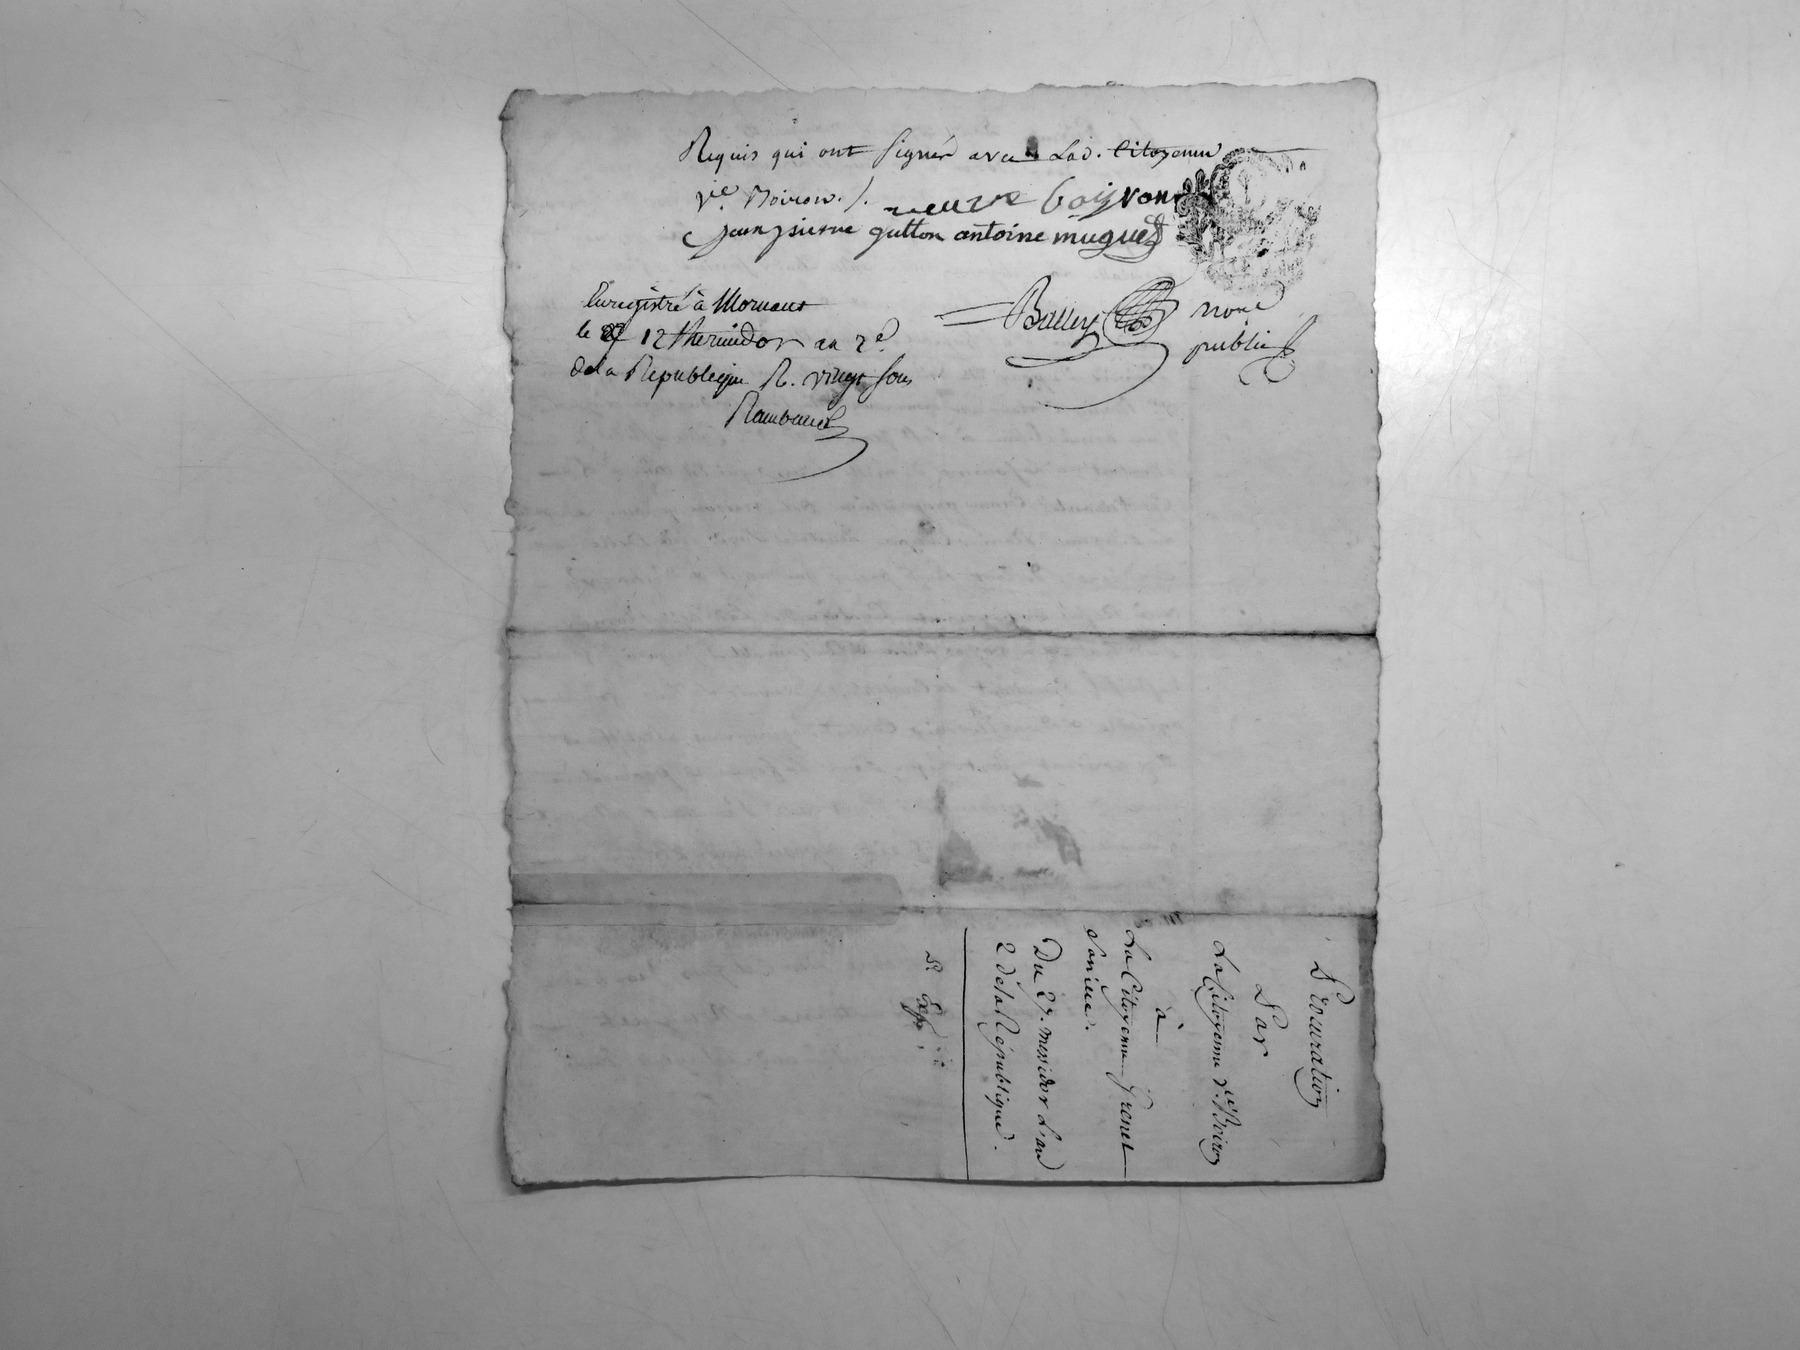 Requis qui ont signés avec Lad. Citoyenne
Ve. Boiron ./. veuve boiyron
jean pierre gutton antoine muguet
Enregistré à Mornant
le 12 thermidor an 2e
de la Republique R. vingt sous
Rambaud
Balley nore
public
Procuration
Par
La Citoyenne Ve. Boiron
à
La Citoyenne Grenet
Du 27. messidor L'an
2 de la République.